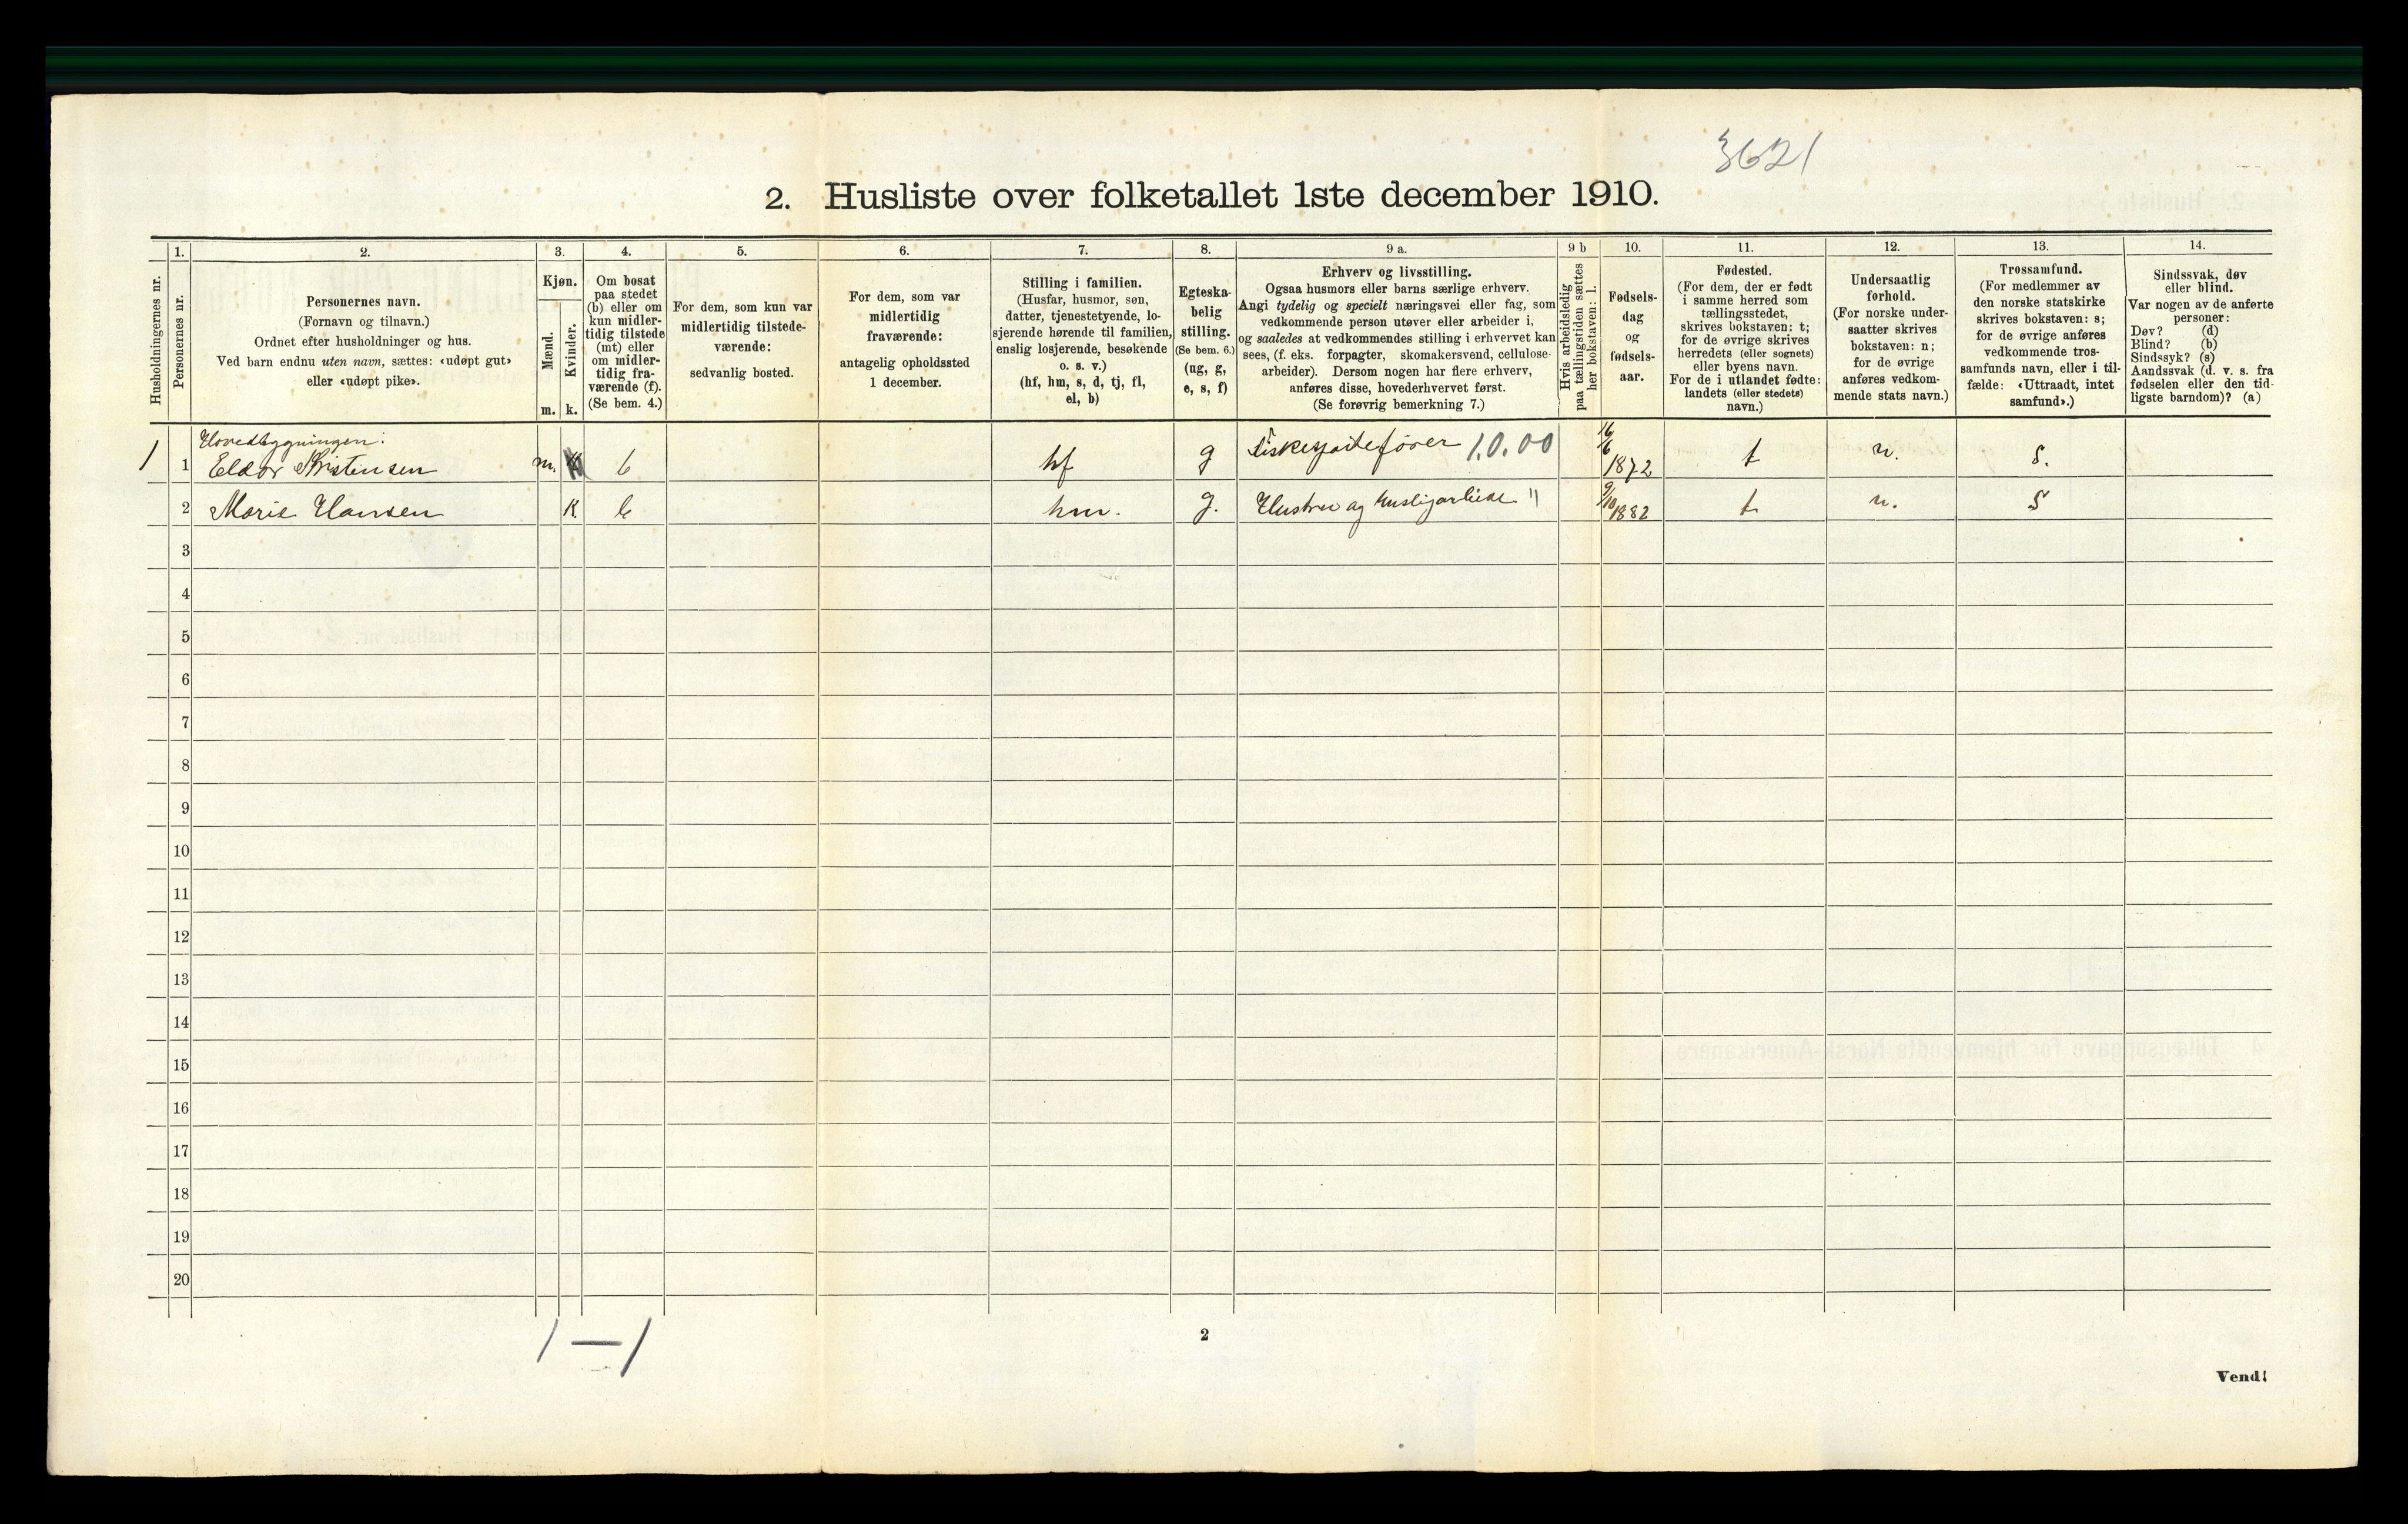 3621
2. Husliste over folketallet 1ste december 1910.
Husholdningernes nr.
1.
Personernes nr.
2.
Personernes navn.
(Fornavn og tilnavn.)
Ordnet efter husholdninger og hus.
Ved barn endnu uten navn, sættes: «udøpt gut»
eller «udøpt pike».
3.
Kjøn.
Mænd.
Kvinder.
m. k.
4.
Om bosat
paa stedet
(b) eller om
kun midler-
tidig tilstede
(mt) eller
om midler-
tidig fra-
værende (f).
(Se bem. 4.)
5.
For dem, som kun var
midlertidig tilstede-
værende:
sedvanlig bosted.
6.
For dem, som var
midlertidig
fraværende:
antagelig opholdssted
1 december.
7.
Stilling i familien.
(Husfar, husmor, søn,
datter, tjenestetyende, lo-
sjerende hørende til familien,
enslig losjerende, besøkende
o. s. v.)
(hf, hm, s, d, tj, fl,
el, b)
8.
Egteska-
belig
stilling.
(Se bem. 6.)
(ug, g,
e, s, f)
9 a.
Erhverv og livsstilling.
Ogsaa husmors eller barns særlige erhverv.
Angi tydelig og specielt næringsvei eller fag, som
vedkommende person utøver eller arbeider i,
og saaledes at vedkommendes stilling i erhvervet kan
sees, (f. eks. forpagter, skomakersvend, cellulose-
arbeider). Dersom nogen har flere erhverv,
anføres disse, hovederhvervet først.
(Se forøvrig bemerkning 7.)
9 b
Hvis arbeidsledig
paa tællingstiden sættes
her bokstaven: l.
10.
Fødsels-
dag
og
fødsels-
aar.
11.
Fødested.
(For dem, der er født
i samme herred som
tællingsstedet,
skrives bokstaven: t;
for de øvrige skrives
herredets (eller sognets)
eller byens navn.
For de i utlandet fødte:
landets (eller stedets)
navn.)
12.
Undersaatlig
forhold.
(For norske under-
saatter skrives
bokstaven: n;
for de øvrige
anføres vedkom-
mende stats navn.)
13.
Trossamfund.
(For medlemmer av
den norske statskirke
skrives bokstaven: s;
for de øvrige anføres
vedkommende tros-
samfunds navn, eller i til-
fælde: «Uttraadt, intet
samfund».)
14.
Sindssvak, døv
eller blind.
Var nogen av de anførte
personer:
Døv? (d)
Blind? (b)
Sindssyk? (s)
Aandssvak (d. v. s. fra
fødselen eller den tid-
ligste barndom)? (a)
Hovedbygningen:
1 1 Eldor Kristensen m. b hf g 1.0.00 16/6 1872 t n. s.
2 Marie Hansen K. b hm. g. Hustru og Husligarbeide " 9/10 1882 t n. s
3
4
5
6
7
8
9
10
11
12
13
14
15
16
17
18
19
20
1 — 1
2
Vend!